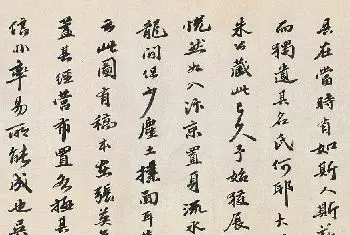 具在當時有如斯人斯
而獨遺其名氏何耶大
朱公藏此已久予始獲展
恍然如入汴京置身流水
龍間但少塵土撲面耳
云此圖有稿本在張英
蓋其經營布置各極其
信非率易所能成也吳